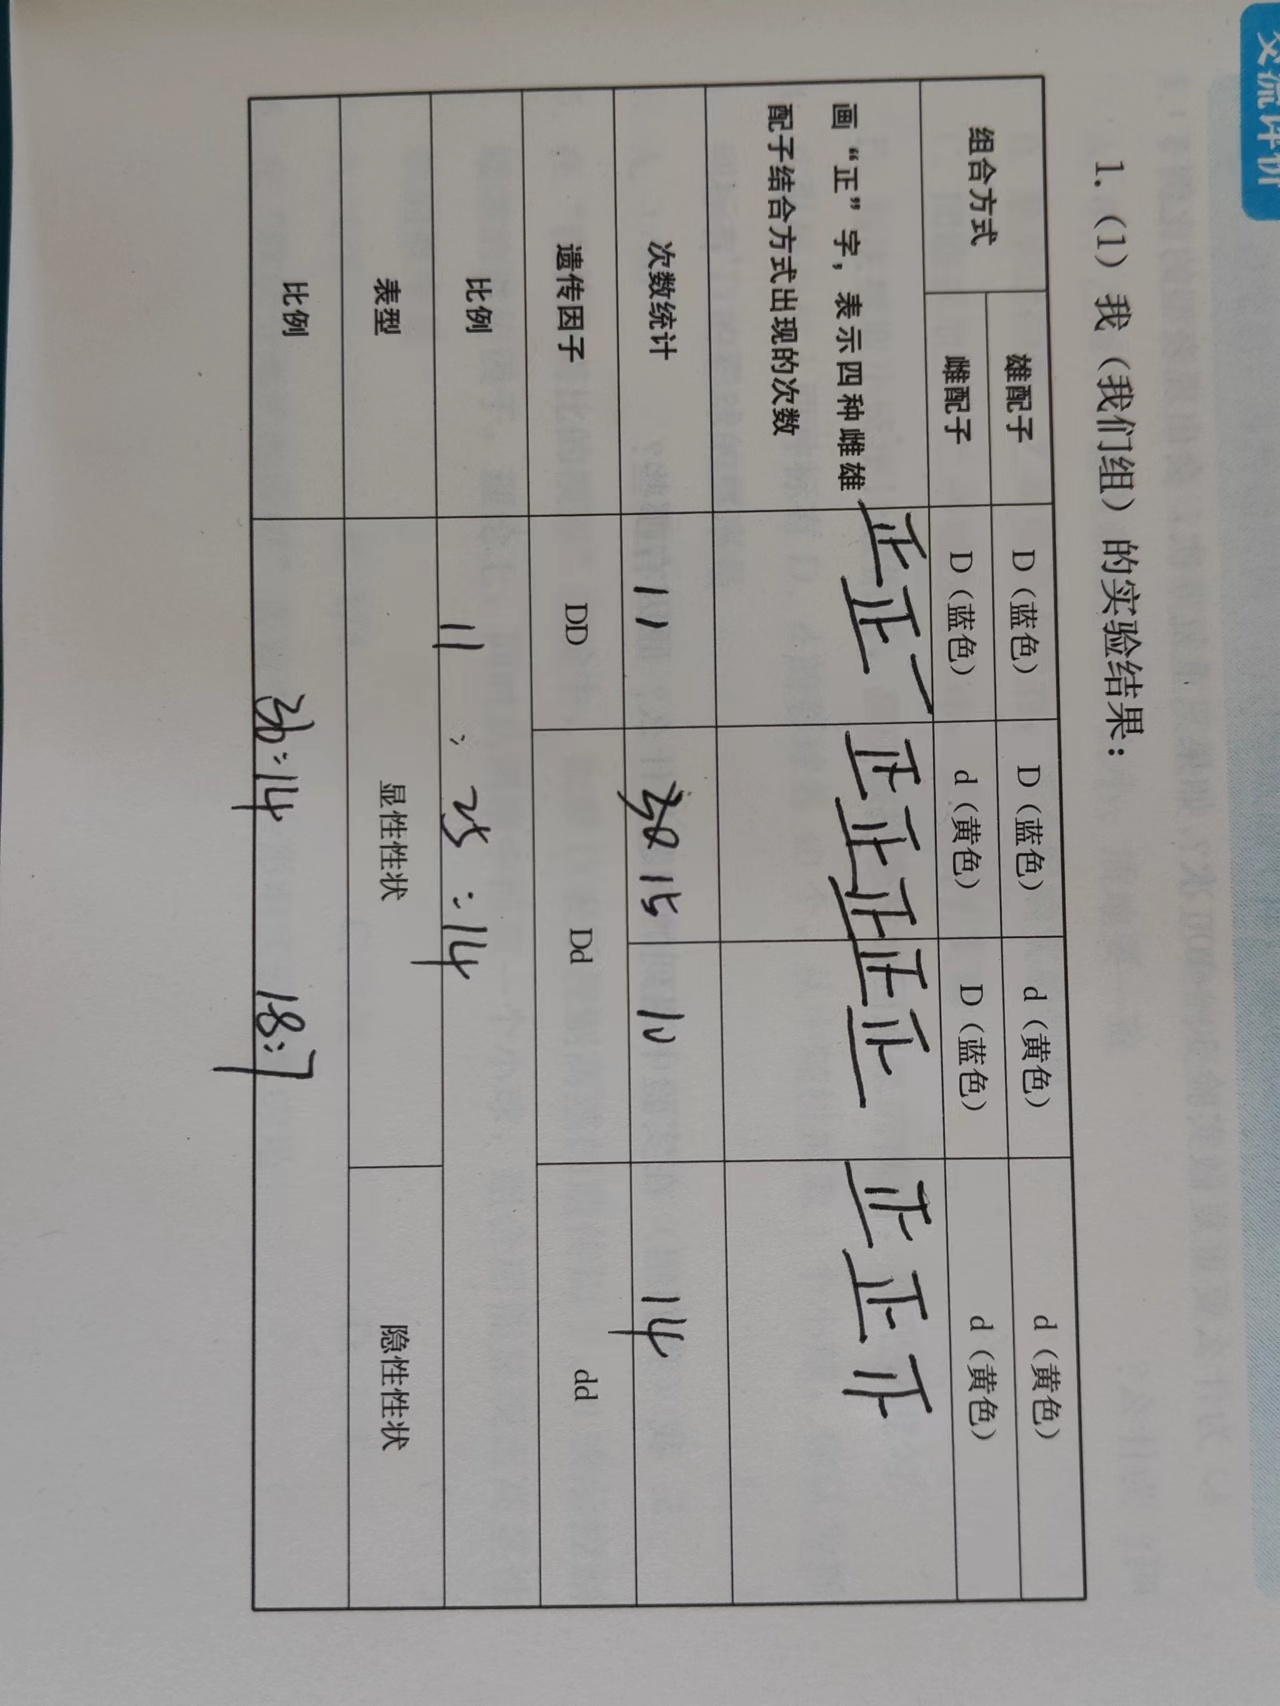 交流评价
1.（1）我（我们组）的实验结果：
组合方式 雄配子 D（蓝色） D（蓝色） d（黄色） d（黄色）
雌配子 D（蓝色） d（黄色） D（蓝色） d（黄色）
画“正”字，表示四种雌雄配子结合方式出现的次数 正正一 正正正 正正 正正正
次数统计 11 15 10 14
遗传因子 DD Dd dd
比例 11 : 25 : 14
表型 显性性状 隐性性状
比例 36:14 18:7